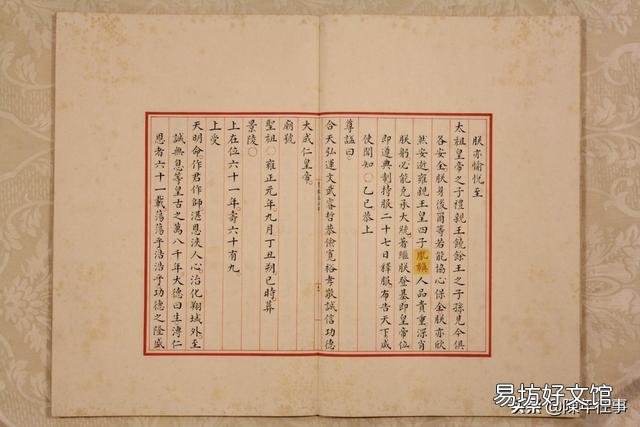 朕亦愉悅至
太祖皇帝之子禮親王饒餘王之子孫見今俱
各安全朕身後爾等若能協心保全朕亦欣
然安逝雍親王皇四子胤禛人品貴重深肖
朕躬必能克承大統著繼朕登基即皇帝位
即遵典制持服二十七日釋服布告天下咸
使聞知○乙巳恭上
尊諡曰
合天弘運文武睿哲恭儉寬裕孝敬誠信功德
大成仁皇帝
廟號
聖祖○雍正元年九月丁丑朔巳時葬
景陵○
上在位六十一年壽六十有九
上受
天明命作君作師湛恩浹人心治化翔域外至
誠無息等皇古之萬八千年大德曰生溥仁
恩者六十一載蕩蕩乎浩浩乎功德之隆盛
易坊好文馆
头条@陳年往事